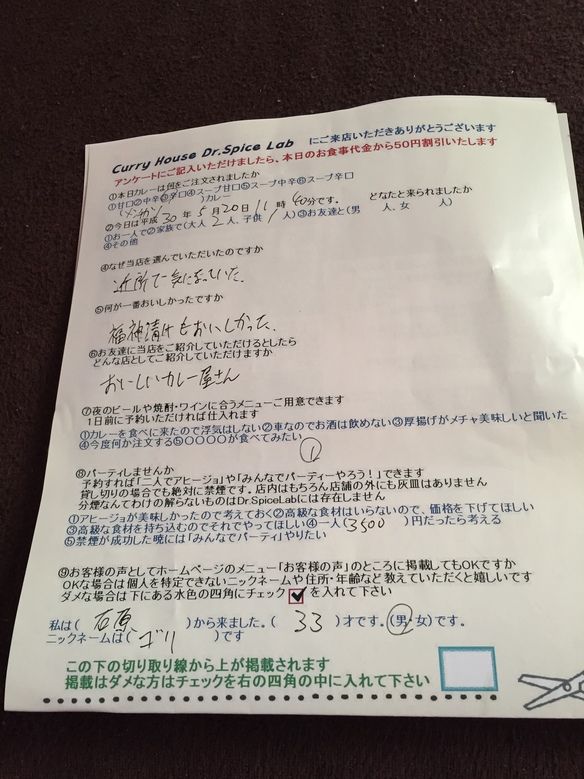 Curry House Dr.Spice Lab にご来店いただきありがとうございます
アンケートにご記入いただけましたら、本日のお食事代金から50円割引いたします
①本日カレーは何をご注文されましたか
①甘口②中辛③辛口④スープ甘口⑤スープ中辛⑥スープ辛口
(メンチカツ )カレー
②今日は平成 30 年 5 月 20 日 11 時 40 分です。 どなたと来られましたか
①お一人で②家族で(大人 2 人、子供 1 人)③お友達と(男 人、女 人)
④その他
④なぜ当店を選んでいただいたのですか
近所で気になっていた。
⑤何が一番おいしかったですか
福神漬けもおいしかった。
⑥お友達に当店をご紹介していただけるとしたら
どんな店としてご紹介していただけますか
おいしいカレー屋さん
⑦夜のビールや焼酎・ワインに合うメニューご用意できます
1日前に予約いただければ仕入れます
①カレーを食べに来たので浮気はしない②車なのでお酒は飲めない③厚揚げがメチャ美味しいと聞いた
④今度何か注文する⑤〇〇〇〇が食べてみたい
①
⑧パーティしませんか
予約すれば「二人でアヒージョ」や「みんなでパーティーやろう！」できます
貸し切りの場合でも絶対に禁煙です。店内はもちろん店舗の外にも灰皿はありません
分煙なんてわけの解らないものはDr.SpiceLabには存在しません
①アヒージョが美味しかったので考えておく②高級な食材はいらないので、価格を下げてほしい
③高級な食材を持ち込むのでそれでやってほしい④一人(3500 )円だったら考える
⑤禁煙が成功した暁には「みんなでパーティ」やりたい
⑨お客様の声としてホームページのメニュー「お客様の声」のところに掲載してもOKですか
OKな場合は個人を特定できないニックネームや住所・年齢など教えていただくと嬉しいです
ダメな場合は下にある水色の四角にチェック ✔ を入れて下さい
私は( 石原 )から来ました。( 33 )才です。(男・女)です。
ニックネームは( ゴリ )です
この下の切り取り線から上が掲載されます
掲載はダメな方はチェックを右の四角の中に入れて下さい